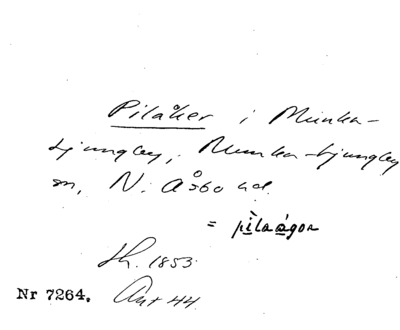 Pilåker i Munka-
Ljungby, Munka-Ljungby
sn, N. Åsbo hd.
= pìlaágor
Sk. 1853.
Nr 7264. Ant 44